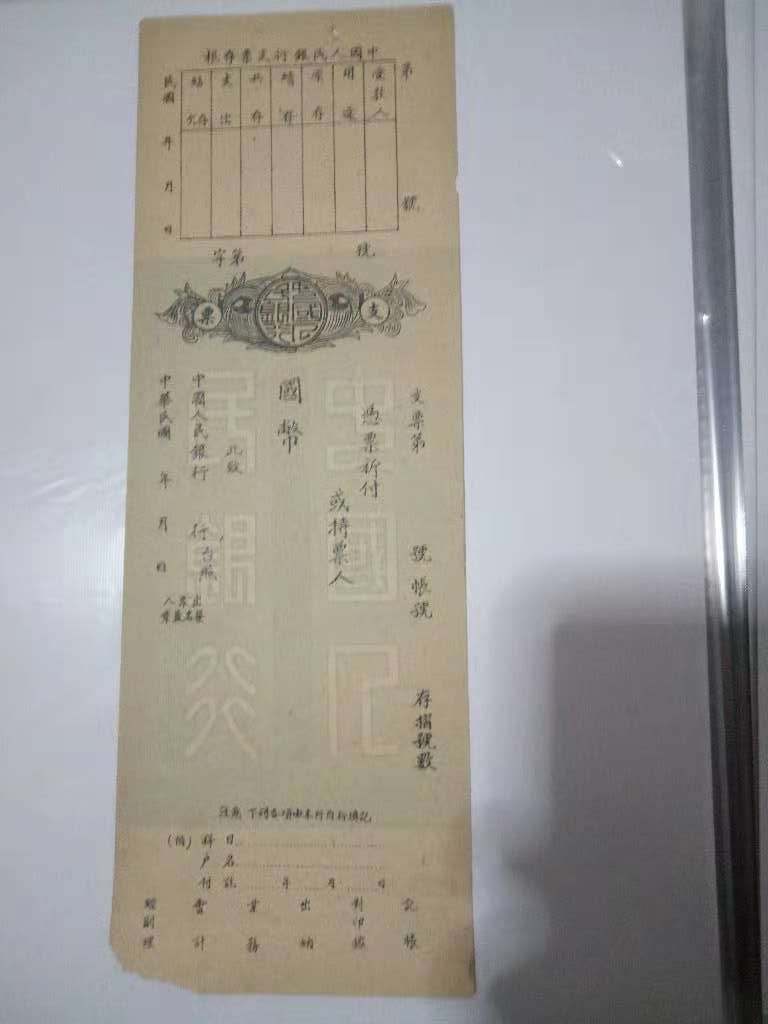 中國人民銀行支票存根
第　號
受款人
用途
原存
續存
共存
支出
結欠存
民國　年　月　日
字第　號
支票
中國人民銀行
支票第　號
帳號
存摺號數
憑票祈付
或持票人
國幣
此致
中國人民銀行　行台照
中華民國　年　月　日
出票人
簽名蓋章
中國人民銀行
注意 下列各項由本行自行填記
(借) 科目
戶名
付訖　年　月　日
記帳
對印鑑
出納
業務
會計
經副理